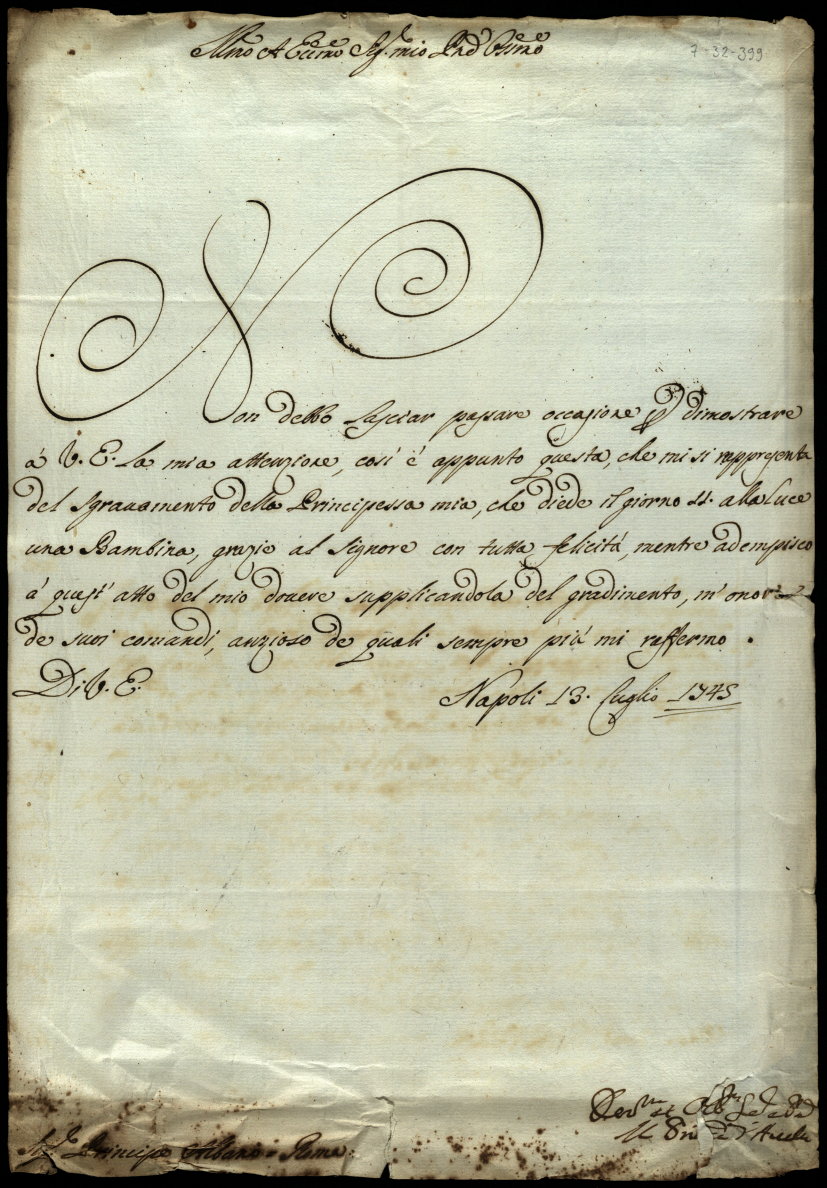 Illmo et Eccmo Sig.r mio Pnd Ossmo
7-32-399
Non debbo lasciar passare occasione p dimostrare
á V. E. la mia attenzione, cosí é appunto questa, che mi si rappresenta
del sgravamento della Principessa mia, che diede il giorno 11. alla Luce
una Bambina, grazie al Signore con tutta felicitá, mentre adempisco
á quest' atto del mio dovere supplicandola del gradimento, m' onori
de suoi comandi, anzioso de quali sempre piú mi raffermo.
Di V. E.
Napoli 13. Luglio 1745
Sig.r Principe Albano = Roma